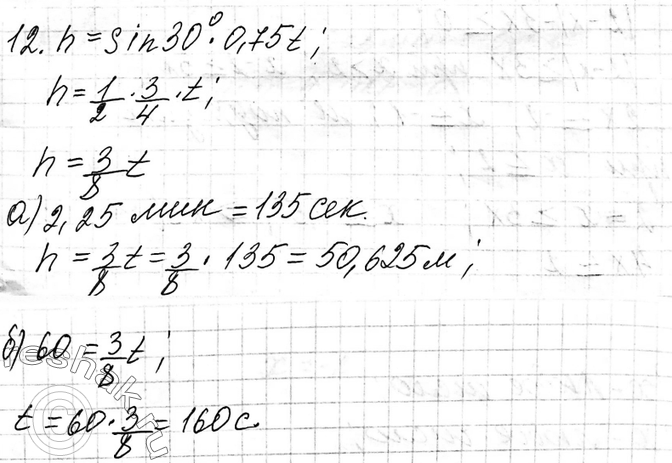 12. h = sin30° · 0,75t;
h = 1/2 · 3/4 · t;
h = 3/8 t
а) 2,25 мин = 135 сек.
h = 3/8 t = 3/8 · 135 = 50,625 м;
б) 60 = 3/8 t;
t = 60 · 3/8 = 160 с.